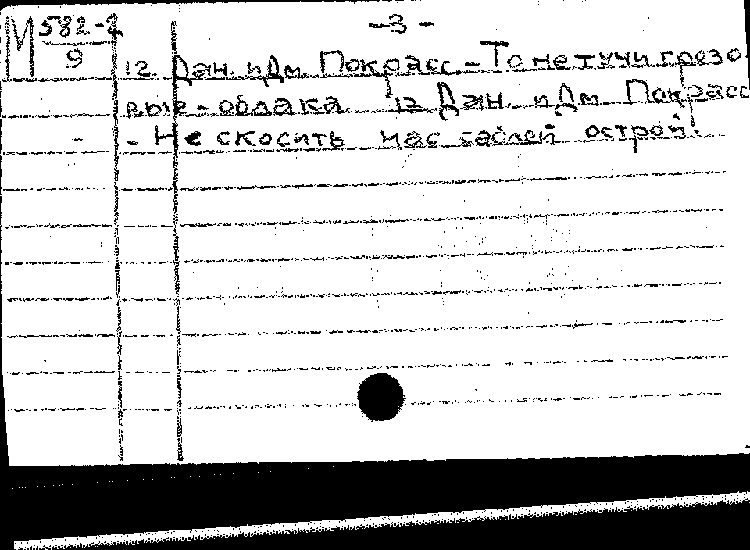 -3-
М 582-2
9
12. Дан. и Дм. Покрасс - То не тучи грозо
вые - облака 12 Дан. и Дм. Покрасс
- - Не скосить нас саблей острой.